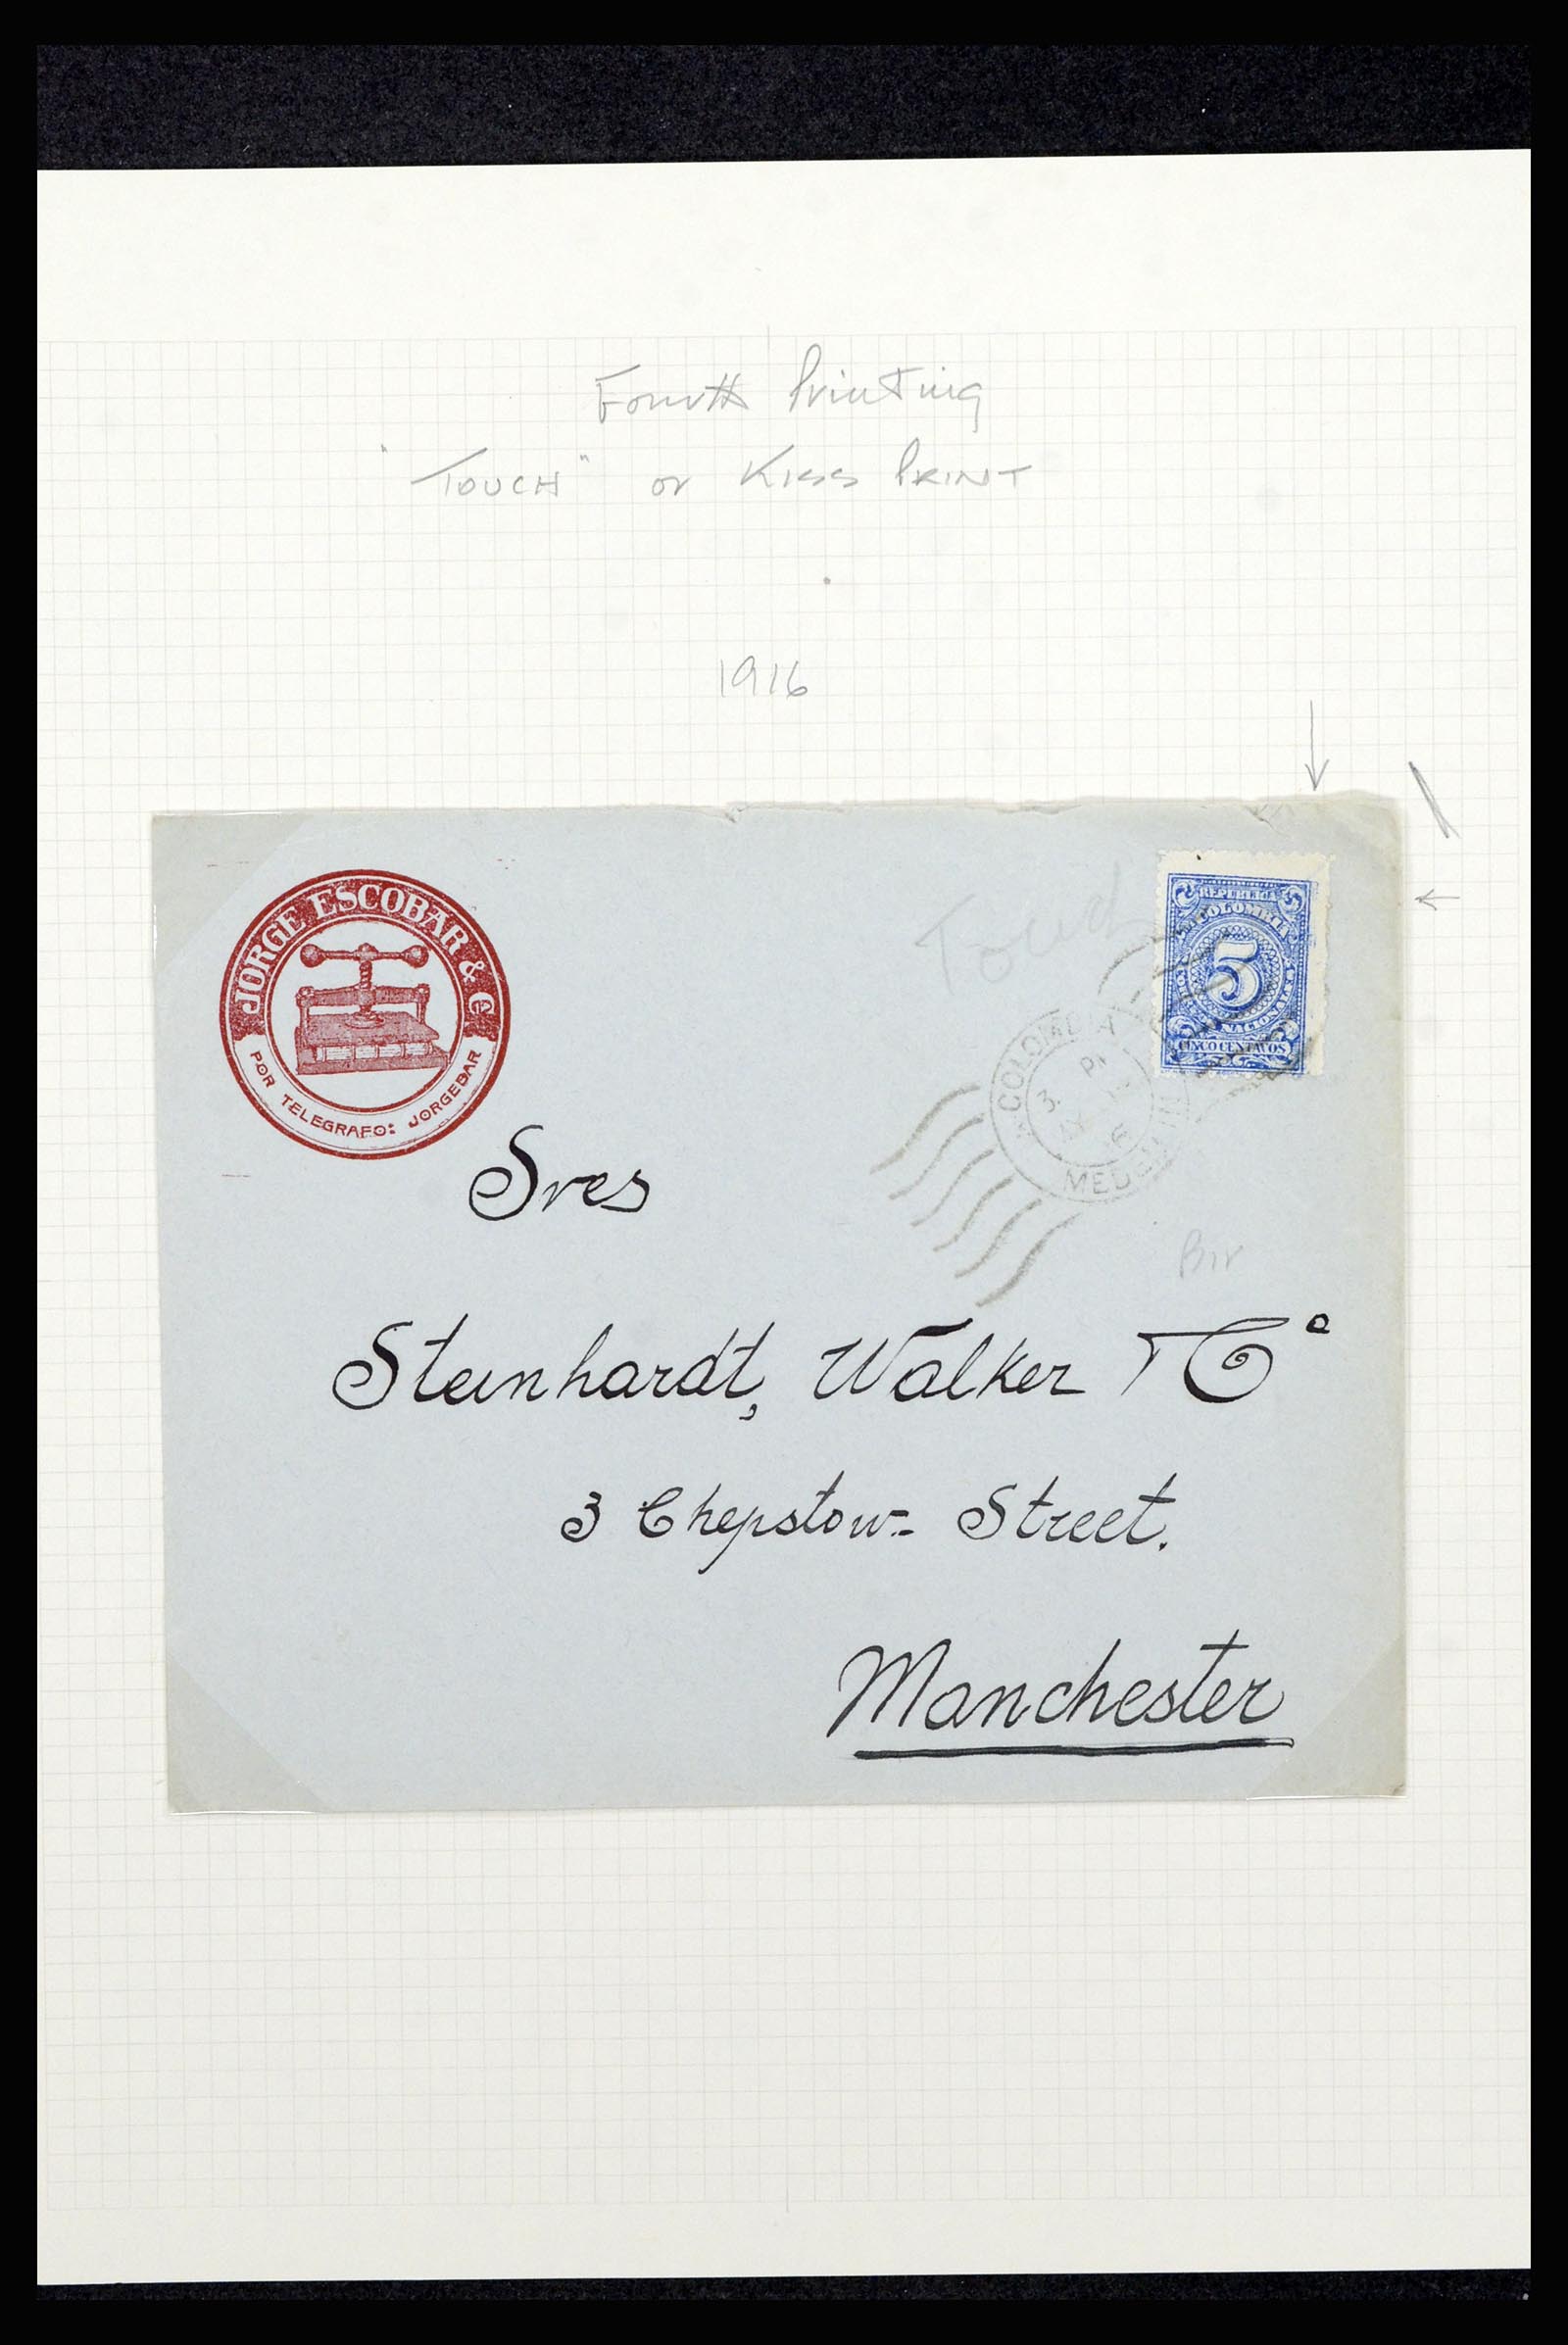 Fourth Printing
"TOUCH" or KISS PRINT
1916
JORGE ESCOBAR & Cª
POR TELEGRAFO: JORGEBAR
REPUBLICA
COLOMBIA
5
NACIONALES
CINCO CENTAVOS
COLOMBIA
MEDELLIN
Sres
Steinhardt, Walker & Cº
3 Chepstow- Street.
Manchester